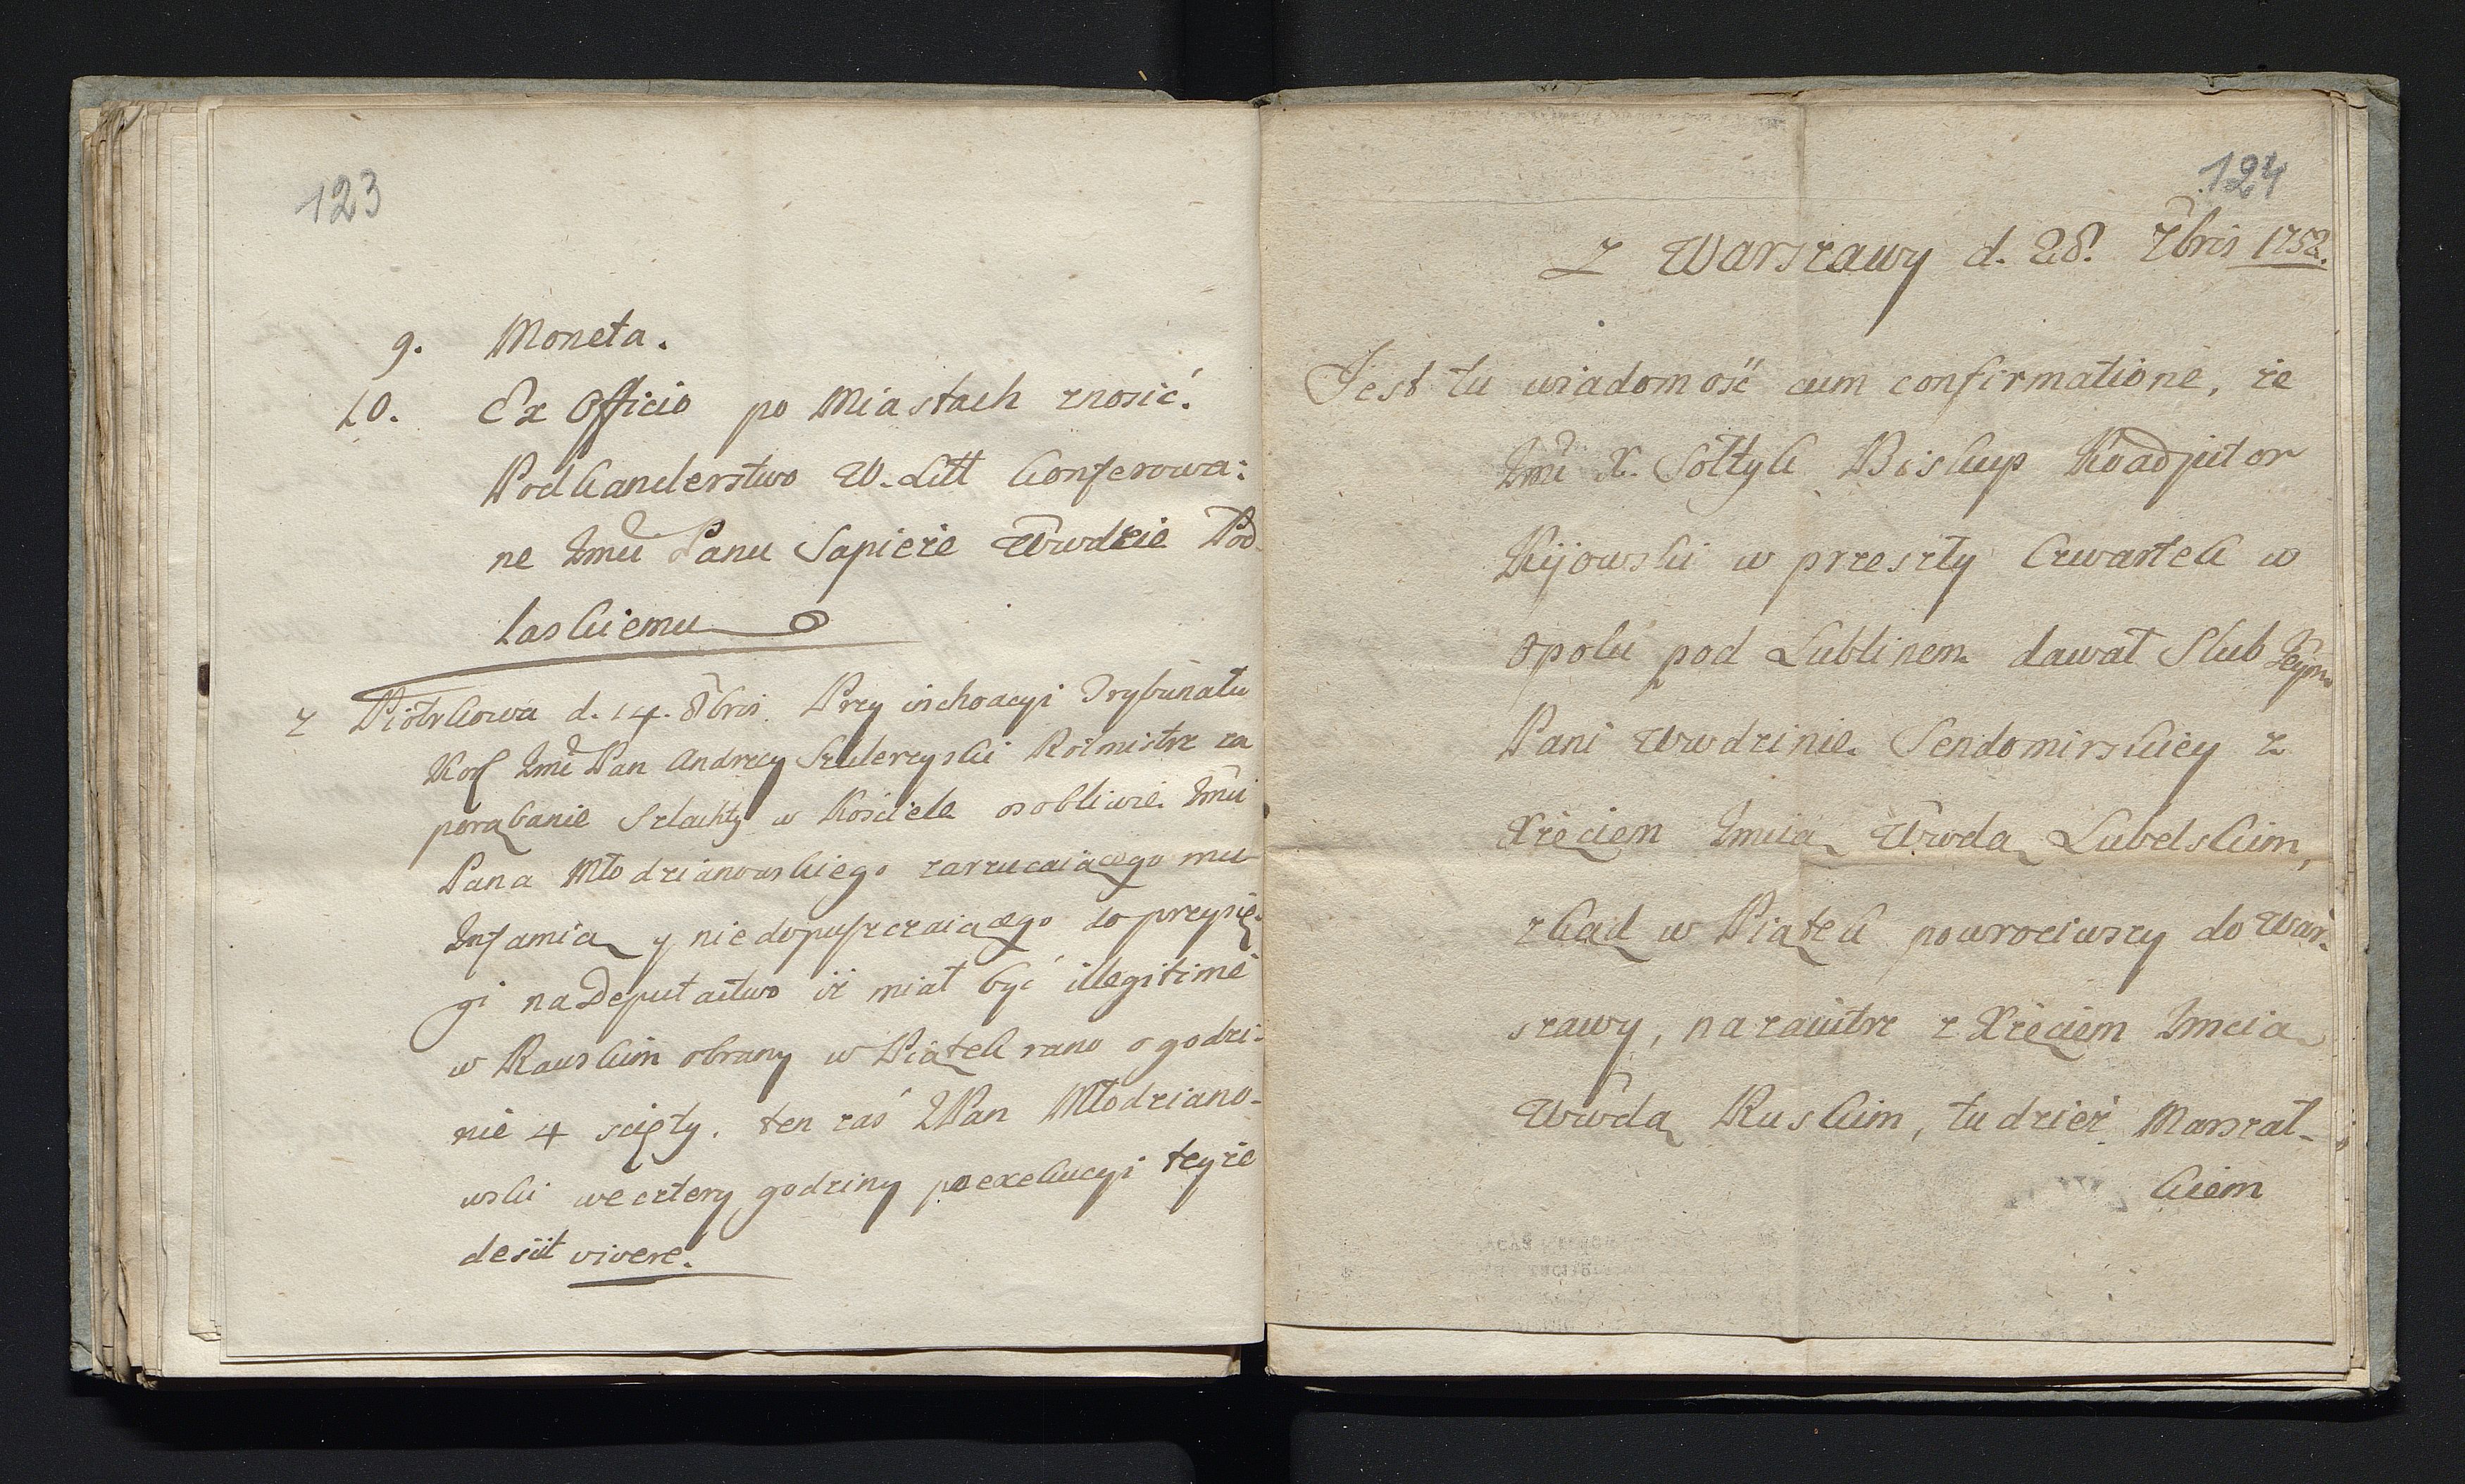 123
9. Moneta.
10. Ex Officio po Miastach znosić.
Podkanclerstwo W. Litt konferowa:
ne Jmći Panu Sapieże Wwdzie Pod
laskiemu
z Piotrkowa d. 14. 8bris. Przy inchoacyi Trybunału
Kor Jmć Pan Andrzey Szulerzyski Rotmistrz za
porąbanie Szlachty w Kościele osobliwie Jmći
Pana Młodzianowskiego zarzucaiącego mu
Infamią y niedopuszczaiącego do przysię:
gi na Deputactwo iż miał być illegitimè
w Rawskim obrany w Piątek rano o godzi:
nie 4 scięty. ten zaś JPan Młodziano-
wski we cztery godziny po exekucyi teyże
desiit vivere.
124
Z Warszawy d. 28. 7bris 1752.
Jest tu wiadomość cum confirmatione, że
Jmć X. Sołtyk Biskup Koadjutor
Kijowski w przeszły Czwartek w
Opolu pod Lublinem dawał Slub Jeym
Pani Wwdzinie Sendomirskiey z
Xżęciem Jmcią Wwdą Lubelskim,
zkąd w Piątek powrociwszy do War-
szawy, nazaiutrz z Xżęciem Jmcią
Wwdą Ruskim, tudzież Marszał-
kiem